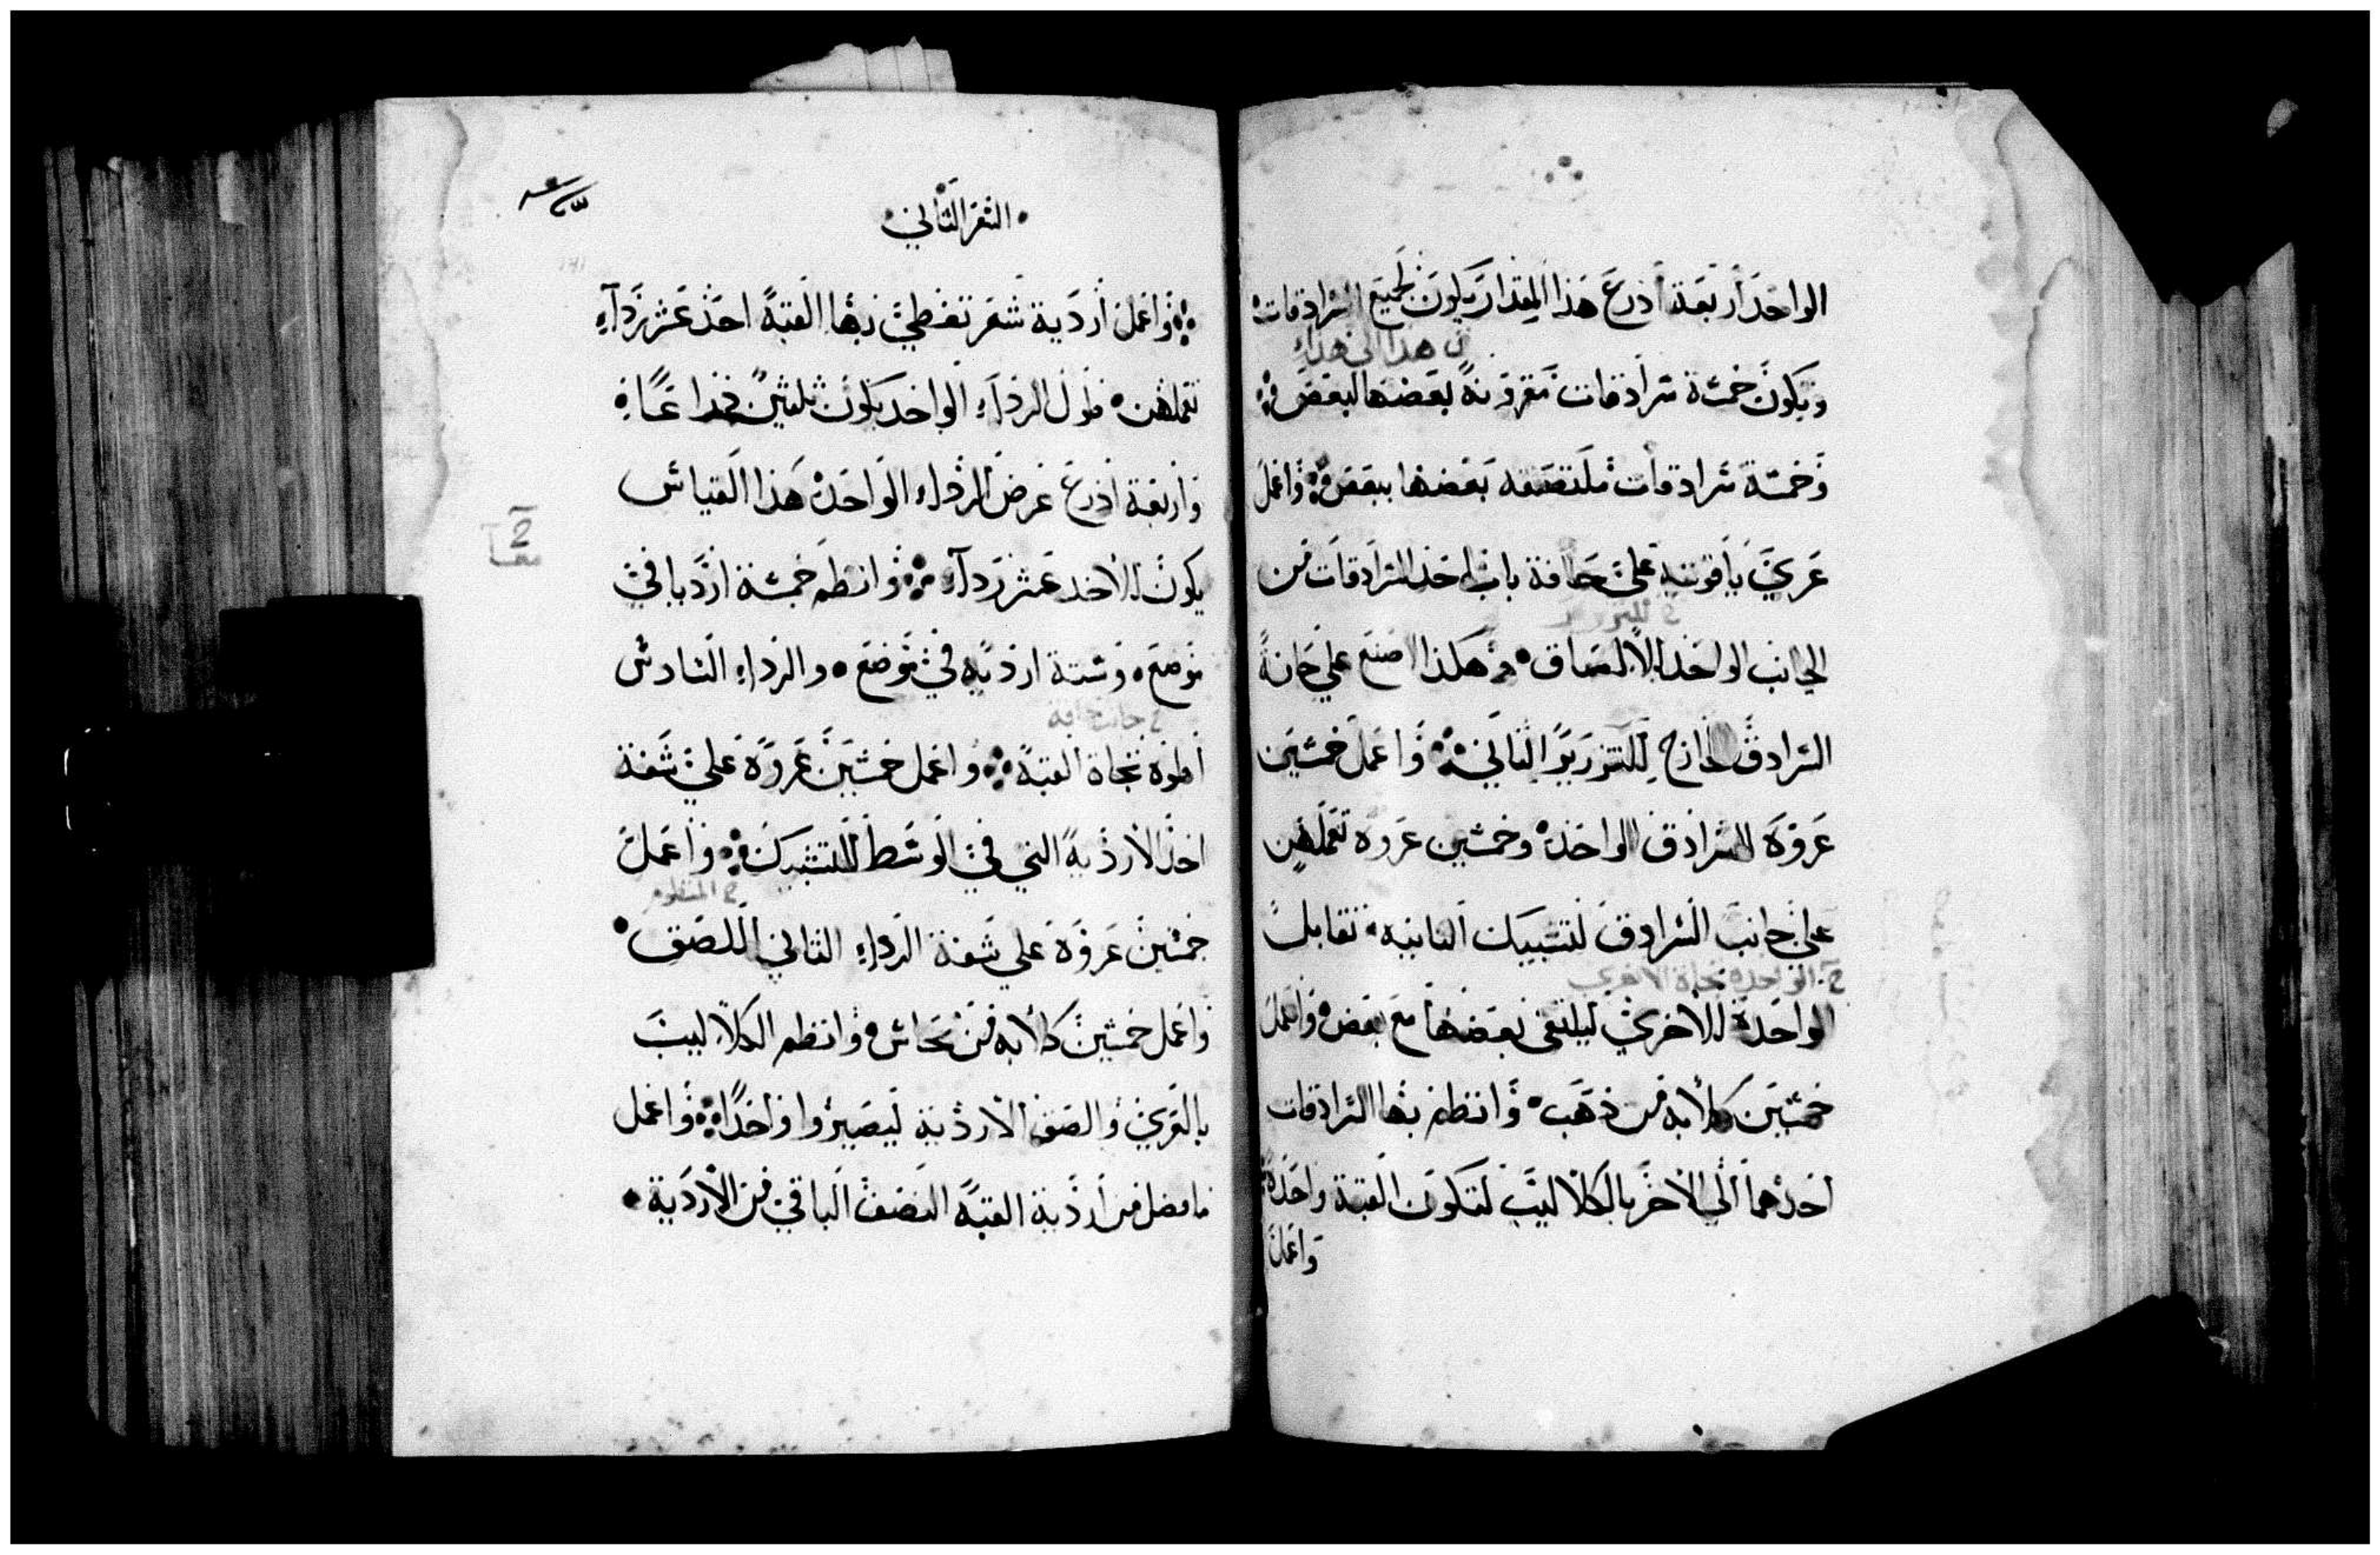 الواحد أربعة أذرع هذا المقدار يكون لجميع السرادقات
من هذا الى هذا
ويكون خمسة سرادقات مقرونة بعضها لبعض
وخمسة سرادقات ملتصقه بعضها ببعض واعمل
عري ياقوتيه على حافة باب احد السرادقات من
الجانب الواحد الالصاق وهكذا اصنع على حافة
السرادق الخارج للتزرير الثاني واعمل خمسين
عروة للسرادق الواحد وخمسين عروه تعملهن
على جانب السرادق لتشبيك الثانيه تقابل
الواحده تجاه الاخرى
الواحدة للأخرى ليلتقي بعضها مع بعض واعمل
خمسين كلابه من ذهب وانظم بها السرادقات
احدهما الى الاخر بالكلاليب لتكون القبة واحدة
واعمل
السفر الثاني
واعمل أردية شعر تغطي بها القبة احد عشر رداء
تعملهن طول الرداء الواحد يكون ثلثين ذراعا
واربعة اذرع عرض الرداء الواحد هذا القياس
يكون للاحد عشر رداء وانظم خمسة ارديا في
موضع وستة ارديه في موضع والرداء السادس
جانب حافة
اطوه تجاة القبة واعمل خمسين عروة على شفة
احد الأردية التي في الوسط للتشبيك واعمل
المنظوم
خمسين عروة على شفة الرداء الثاني اللصق
واعمل خمسين كلابه من نحاس وانظم الكلاليب
بالعري والصق الاردية ليصيروا واحدا واعمل
ما فضل من أردية القبة النصف الباقي من الأردية